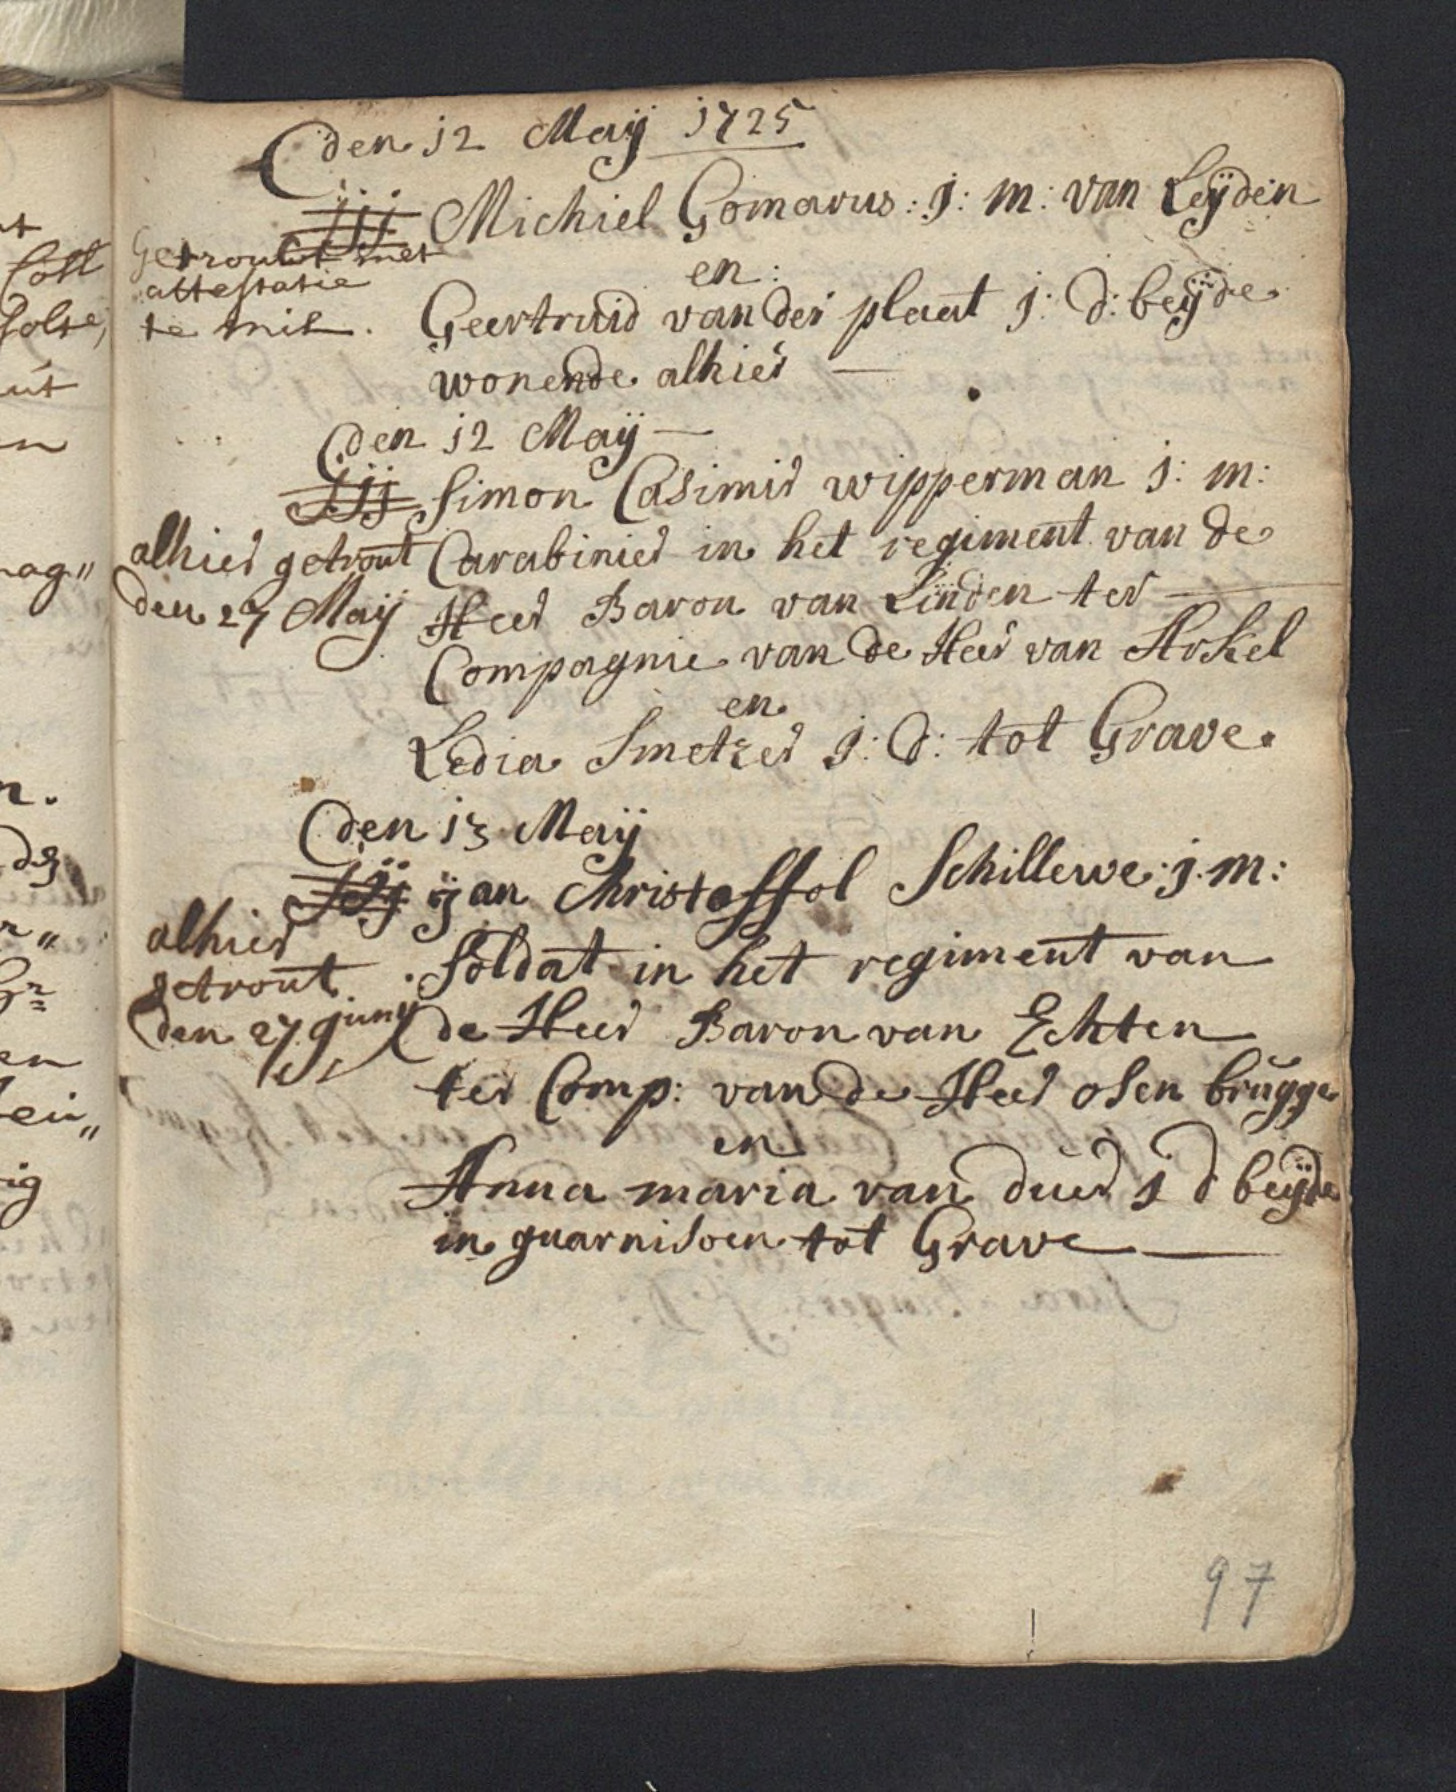 den 12 Maÿ 1725
jjj Michiel Gomarus: j: m: van Leÿden
Getrouwt met
attestatie
te Mil.
en:
Geertruid van der plaat j: d: beÿde
wonende alhier
den 12 Maÿ
jjj Simon Casimir wipperman j: m:
alhier getrout
den 27 Maÿ
Carabinier in het regiment van de
Heer Baron van Linden ter
Compagnie van de Heer van Arkel
en
Ledia Smetzer j: d: tot Grave.
den 13 Maÿ
jjj ÿan Christoffol Schillewe: j. m:
alhier
getrout
den 27 juny
Soldat in het regiment van
de Heer Baron van Echten
ter Comp: van de Heer osen brugge
en
Anna maria van duer j d beÿde
in guarnisoen tot Grave
97